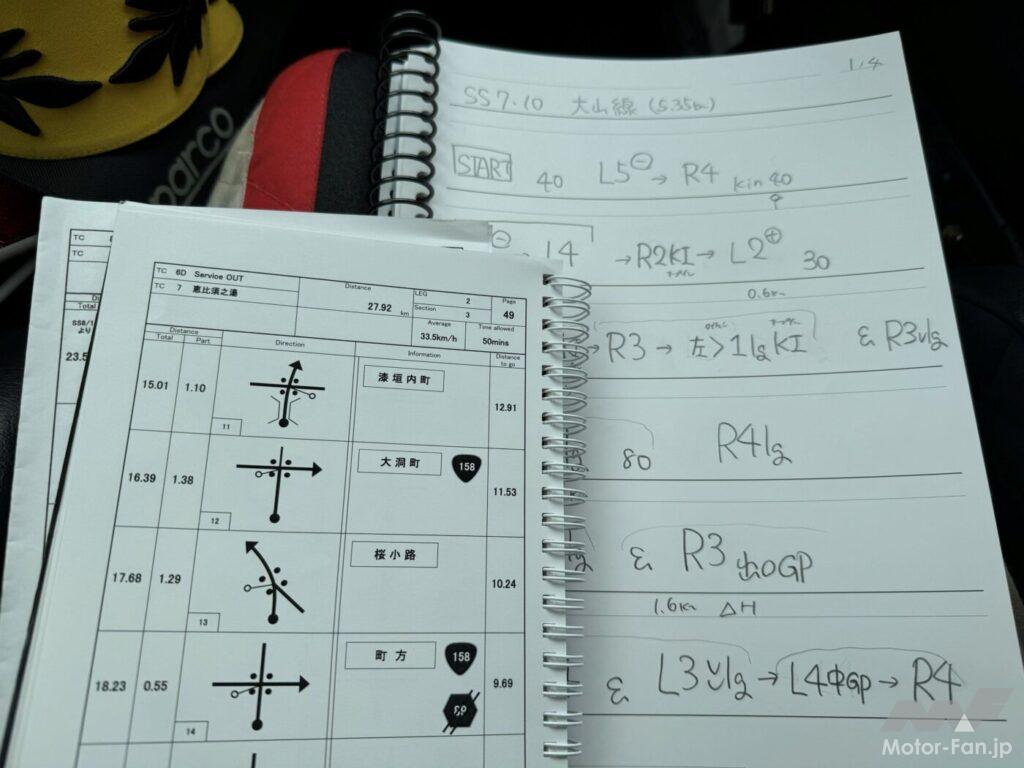 parco
1/4
SS7.10 大山線 (5.35km)
START 40 L5⊖→ R4 kin 40
⊖ L4 →R2KI→ L2⊕ 30
0.6km
→ R3 → 左>1lg KI & R3∨lg
80 R4lg
& R3 出口GP
1.6km △H
& L3∨lg → L4中GP → R4
TC
TC
Total
SS8/1
より
23.5
TC 6D Service OUT
TC 7 恵比須之湯
Distance
27.92 km
LEG 2
Section 3
Page
49
Average
33.5km/h
Time allowed
50mins
Distance
Total Part.
Direction
Information
Distance
to go
15.01 1.10 11 漆垣内町 12.91
16.39 1.38 12 大洞町 158 11.53
17.68 1.29 13 桜小路 10.24
18.23 0.55 14 町方 158 9.69
Motor-Fan.jp